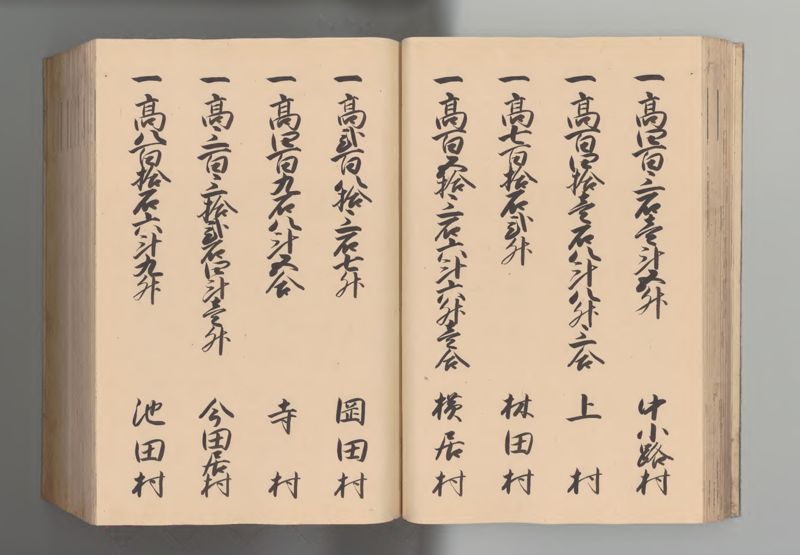 一高四百三石壱斗五升 中小路村
一高百四拾壱石八斗八升三合 上村
一高七百拾石弐升 林田村
一高百五拾三石六斗六升壱合 横居村
一高弐百八拾三石七升 岡田村
一高四百九石八斗五合 寺村
一高三百三拾弐石四斗壱升 今田居村
一高八百拾石六斗九升 池田村